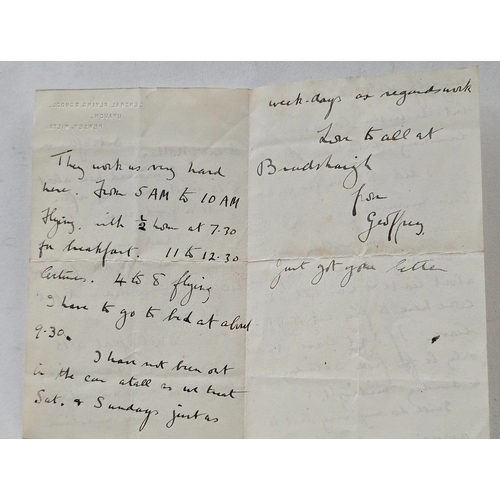 They work us very hard
here. From 5 AM to 10 AM
Flying, with ½ hour at 7.30
for breakfast. 11 to 12.30
lectures. 4 to 8 flying
I have to go to bed at about
9.30.
I have not been out
in the car atall as we treat
Sat. & Sundays just as
week-days as regards work
Love to all at
Bradshaigh
from
Geoffrey
Just got your letter